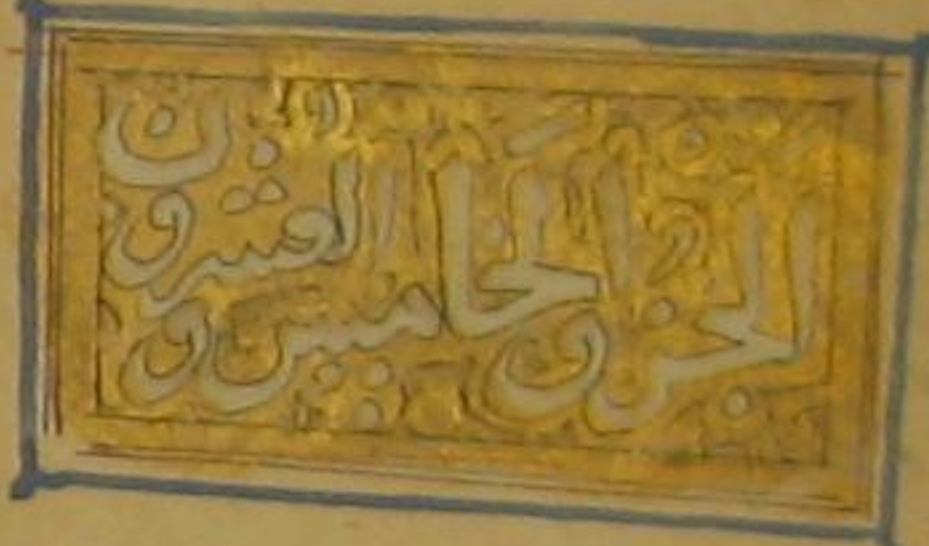 الجزو الخامس و العشرون